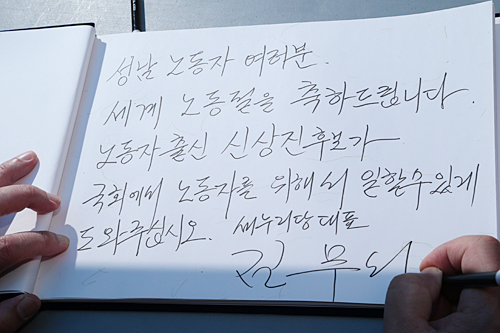 성남 노동자 여러분.
세계 노동절을 축하드립니다.
노동자출신 신상진후보가
국회에서 노동자를 위해서 일할수있게
도와주십시오. 새누리당대표
김무서